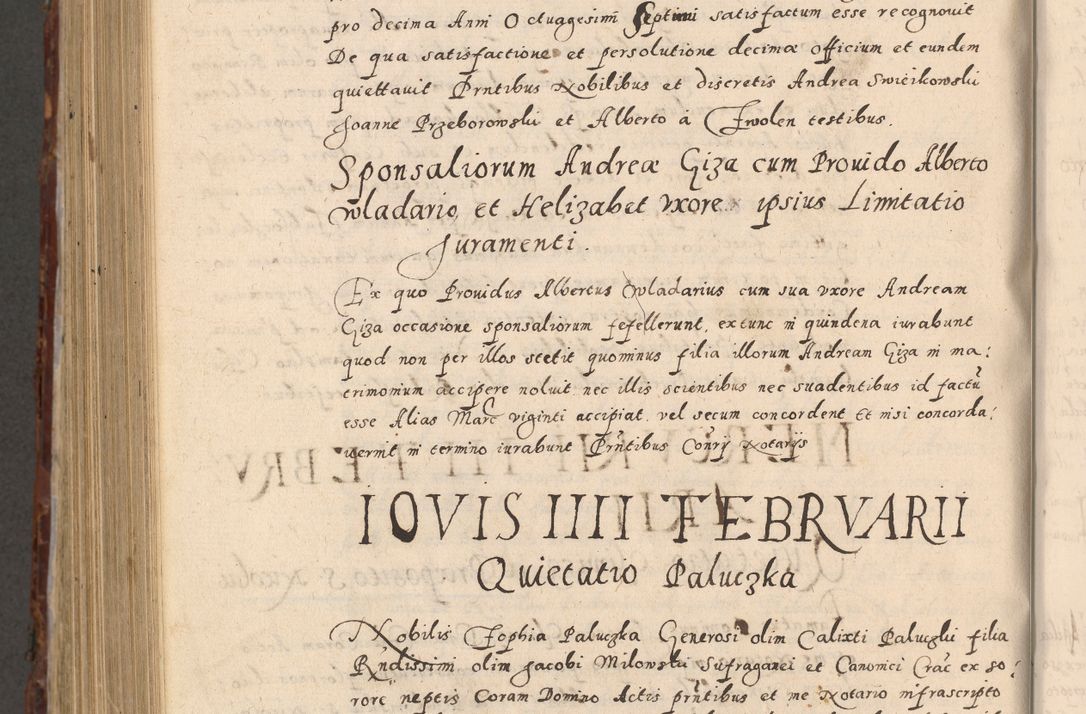 pro decima Anni Octuagesimi septimi satisfactum esse recognouit
De qua satisfactione et persolutione decimæ officium et eundem
quiettauit Prntibus Nobilibus et discretis Andrea Swieżkowski
Joanne Przeborowski et Alberto à Zwolen testibus.
Sponsaliorum Andreæ Giza cum Prouido Alberto
wladario et Helizabet vxore ipsius Limitatio
Juramenti.
Ex quo Prouidus Albertus wladarius cum sua vxore Andream
Giza occasione sponsaliorum fefellerunt, ex tunc in quindena iurabunt
quod non per illos stetit quominus filia illorum Andream Giza in ma:
trimonium accipere noluit nec illis scientibus nec suadentibus id factū
esse Alias Marc viginti accipiat vel secum concordent Et nisi concorda:
uerint in termino iurabunt Prntibus Conrj Notarijs
IOVIS IIII FEBRVARII
Quietatio Paluczka
Nobilis Zophia Paluczka Generosi olim Calixti Paluczki filia
Rndissimi olim Jacobi Milowski Sufraganei et Canonici Crac ex so:
rore neptis Coram Domino Actis prntibus et me Notario infrascripto